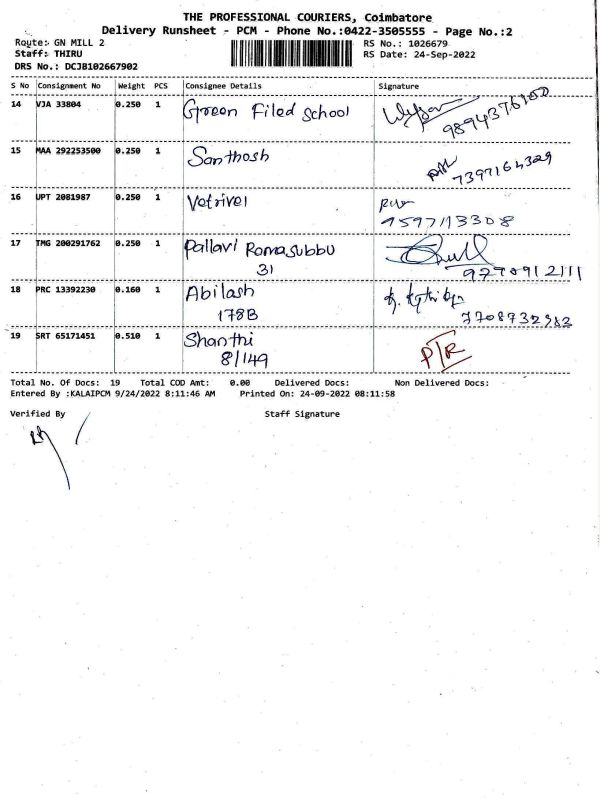 THE PROFESSIONAL COURIERS, Coimbatore
Delivery Runsheet - PCM - Phone No.:0422-3505555 - Page No.:2
Route: GN MILL 2
RS No.: 1026679
Staff: THIRU
RS Date: 24-Sep-2022
DRS No.: DCJB102667902
S No Consignment No Weight PCS Consignee Details Signature
14 VJA 33804 0.250 1 Green Filed School
9894376100
15 MAA 292253500 0.250 1 Santhosh
7397164329
16 UPT 2081987 0.250 1 Vetrivel
9597113308
17 TMG 200291762 0.250 1 Pallavi Ramasubbu
31 9270912111
18 PRC 13392230 0.160 1 Abilash
178B 7708932982
19 SRT 65171451 0.510 1 Shanthi
8/149 P/R
Total No. Of Docs: 19 Total COD Amt: 0.00 Delivered Docs: Non Delivered Docs:
Entered By :KALAIPCM 9/24/2022 8:11:46 AM Printed On: 24-09-2022 08:11:58
Verified By Staff Signature